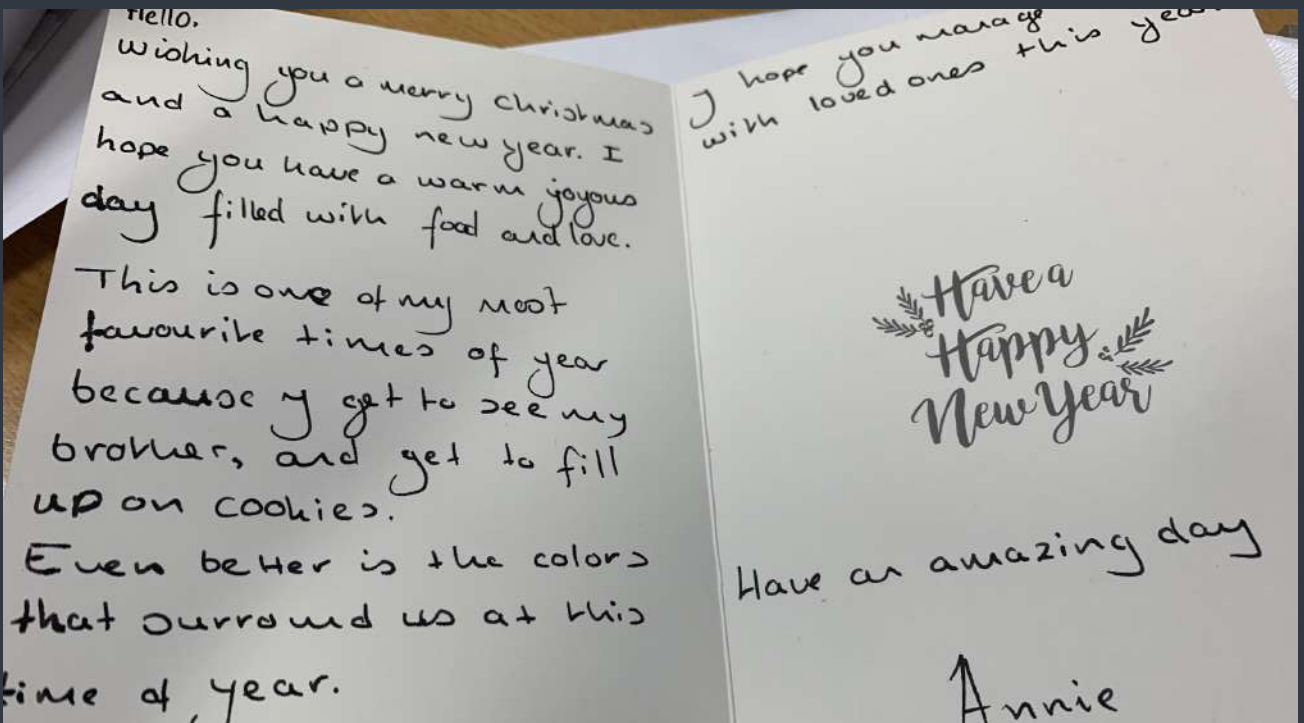 Hello.
Wishing you a merry christmas
and a happy new year. I
hope you have a warm joyous
day filled with food and love.
This is one of my most
favourite times of year
because y get to see my
brother, and get to fill
up on cookies.
Even better is the colors
that surround us at this
time of year.
I hope you manage
with loved ones this year
Have a
Happy
New Year
Have an amazing day
Annie